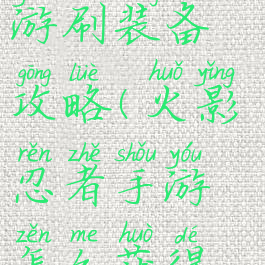 游刷装备
gōng lüè huǒ yǐng
攻略(火影
rěn zhě shǒu yóu
忍者手游
zěn me huò dé
怎么获得